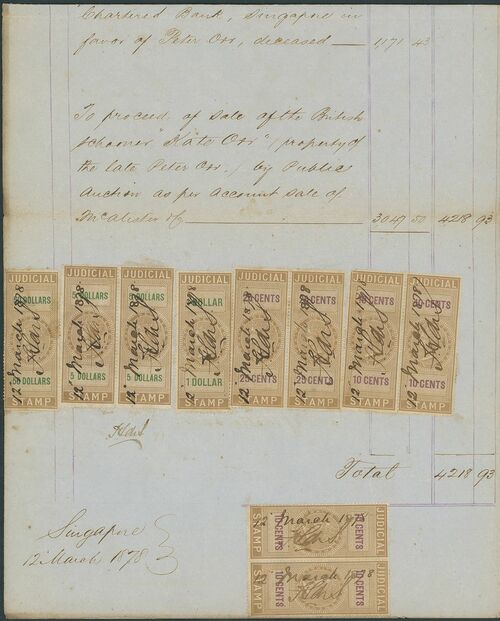 Chartered Bank, Singapore in
favor of Peter Orr, deceased — 1,171 43
To proceed of sale of the British
Schooner "Kate Orr" (property of
the late Peter Orr.) by Public
Auction as per Account Sale of
McAlister & Co 3047 50 4218 93
JUDICIAL JUDICIAL JUDICIAL JUDICIAL JUDICIAL JUDICIAL JUDICIAL JUDICIAL
DOLLARS 5 DOLLARS 5 DOLLARS 1 DOLLAR 25 CENTS 25 CENTS 10 CENTS 10 CENTS
12 March 1878 12 March 1878 12 March 1878 12 March 1878 12 March 1878 12 March 1878 12 March 1878 12 March 1878
DOLLARS 5 DOLLARS 5 DOLLARS 1 DOLLAR 25 CENTS 25 CENTS 10 CENTS 10 CENTS
STAMP STAMP STAMP STAMP STAMP STAMP STAMP STAMP
Total 4218 93
Singapore
12 March 1878
STAMP 10 CENTS 12 March 1878 10 CENTS JUDICIAL
STAMP 10 CENTS 12 March 1878 10 CENTS JUDICIAL